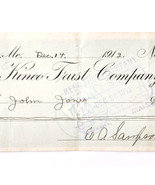 Mo. Dec. 14, 1912 N
Kinco Trust Company
John Jones
E A Sampso